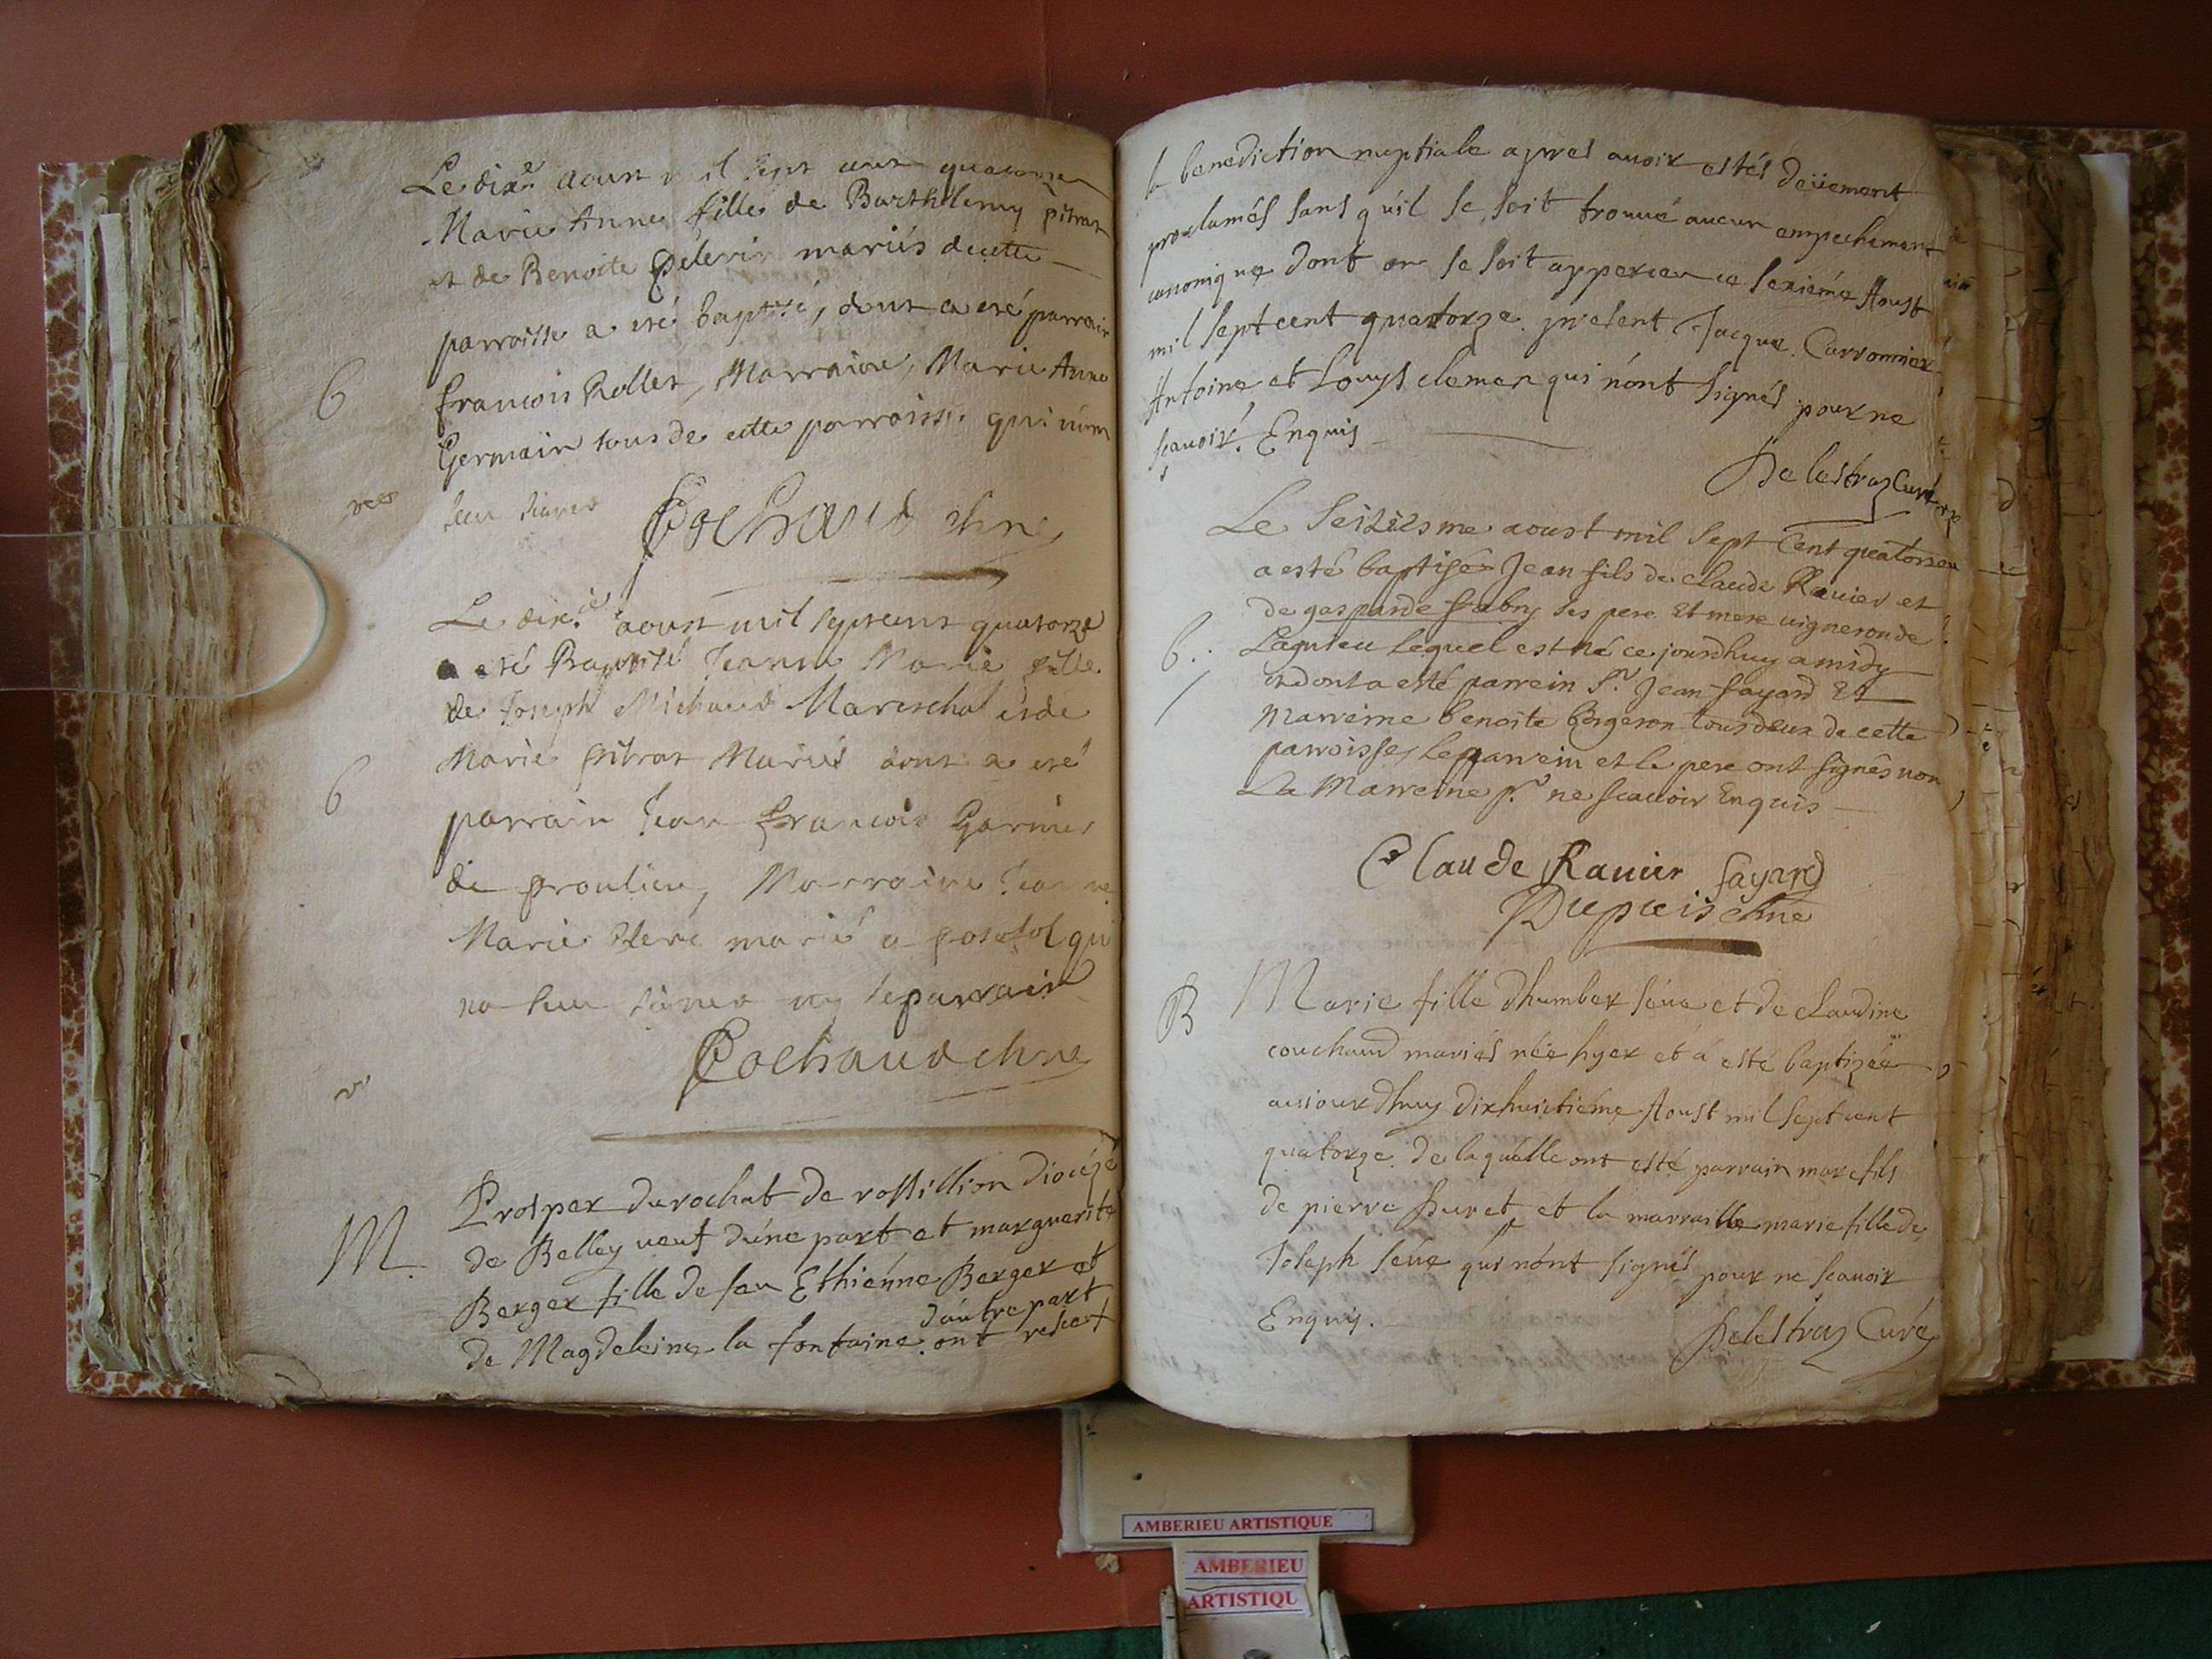 Le dix.e aoust mil sept cent quatorze
Marie Anne fille de Barthelemy pitrat
et de Benoite Pelerin mariés de cette
parroisse a eté baptisé, dont a eté parrain
B
francois Rollet, Marraine, Marie Anne
Germain tous de cette parroisse qui n'ont
sceu signer Cochaud chne
Le dix.e aoust mil sept cent quatorze
a eté Baptisé Jeanne Marie fille
de Joseph Michaud Mareschal et de
Marie pitrat Mariés dont a eté
B
parrain Jean francois Garnier
de proulieu, Marraine Jeanne
Marie marié a qui
na sceu signer ny le parrain
Cochaud chne
M.
Prosper durochat de rossillion diocéze
de Belley veuf d'úne part et marguerite
Berger fille de feu Ethiénne Berger et
d'áutre part
de Magdeleine la fontaine. ont resceu
la benediction nuptiale apres avoir estés deüement
proclamés sans qu'il se soit trouvé aucun empechement
canonique dont on se soit apperceu ce seziéme Aoust
mil sept cent quatorze. present Jacque. Carronnier
Antoine et Louys clemen qui n'ont signés pour ne
scavoir. Enquis
Delestraz Curé
Le Seiziesme aoust mil sept Cent quatorze
a esté baptisé Jean fils de claude Ravier et
de gasparde fabry ses pere Et mere vigneron de
B.
Lagnieu lequel est né ce jourdhuy a midy
et dont a esté parrein Sr. Jean fayard Et
Marreine benoite bergeron tous deux de cette
parroisse, le parrein et le pere ont signés non
La Marreine pr. ne scavoir Enquis
Claude Ravier fayard
Dupuis chne
B
Marie fille d'humber séve et de claudine
couchaud mariés née hyer et a esté baptizée
auiourdhuy dixhuictiéme Aoust mil sept cent
quatorze. de laquelle ont esté parrain marc fils
de pierre Duret et la marraille marie fille de
Joseph séve qui n'ont signés pour ne scavoir
Enquis.
Delestraz Curé
AMBERIEU ARTISTIQUE
AMBERIEU
ARTISTIQU